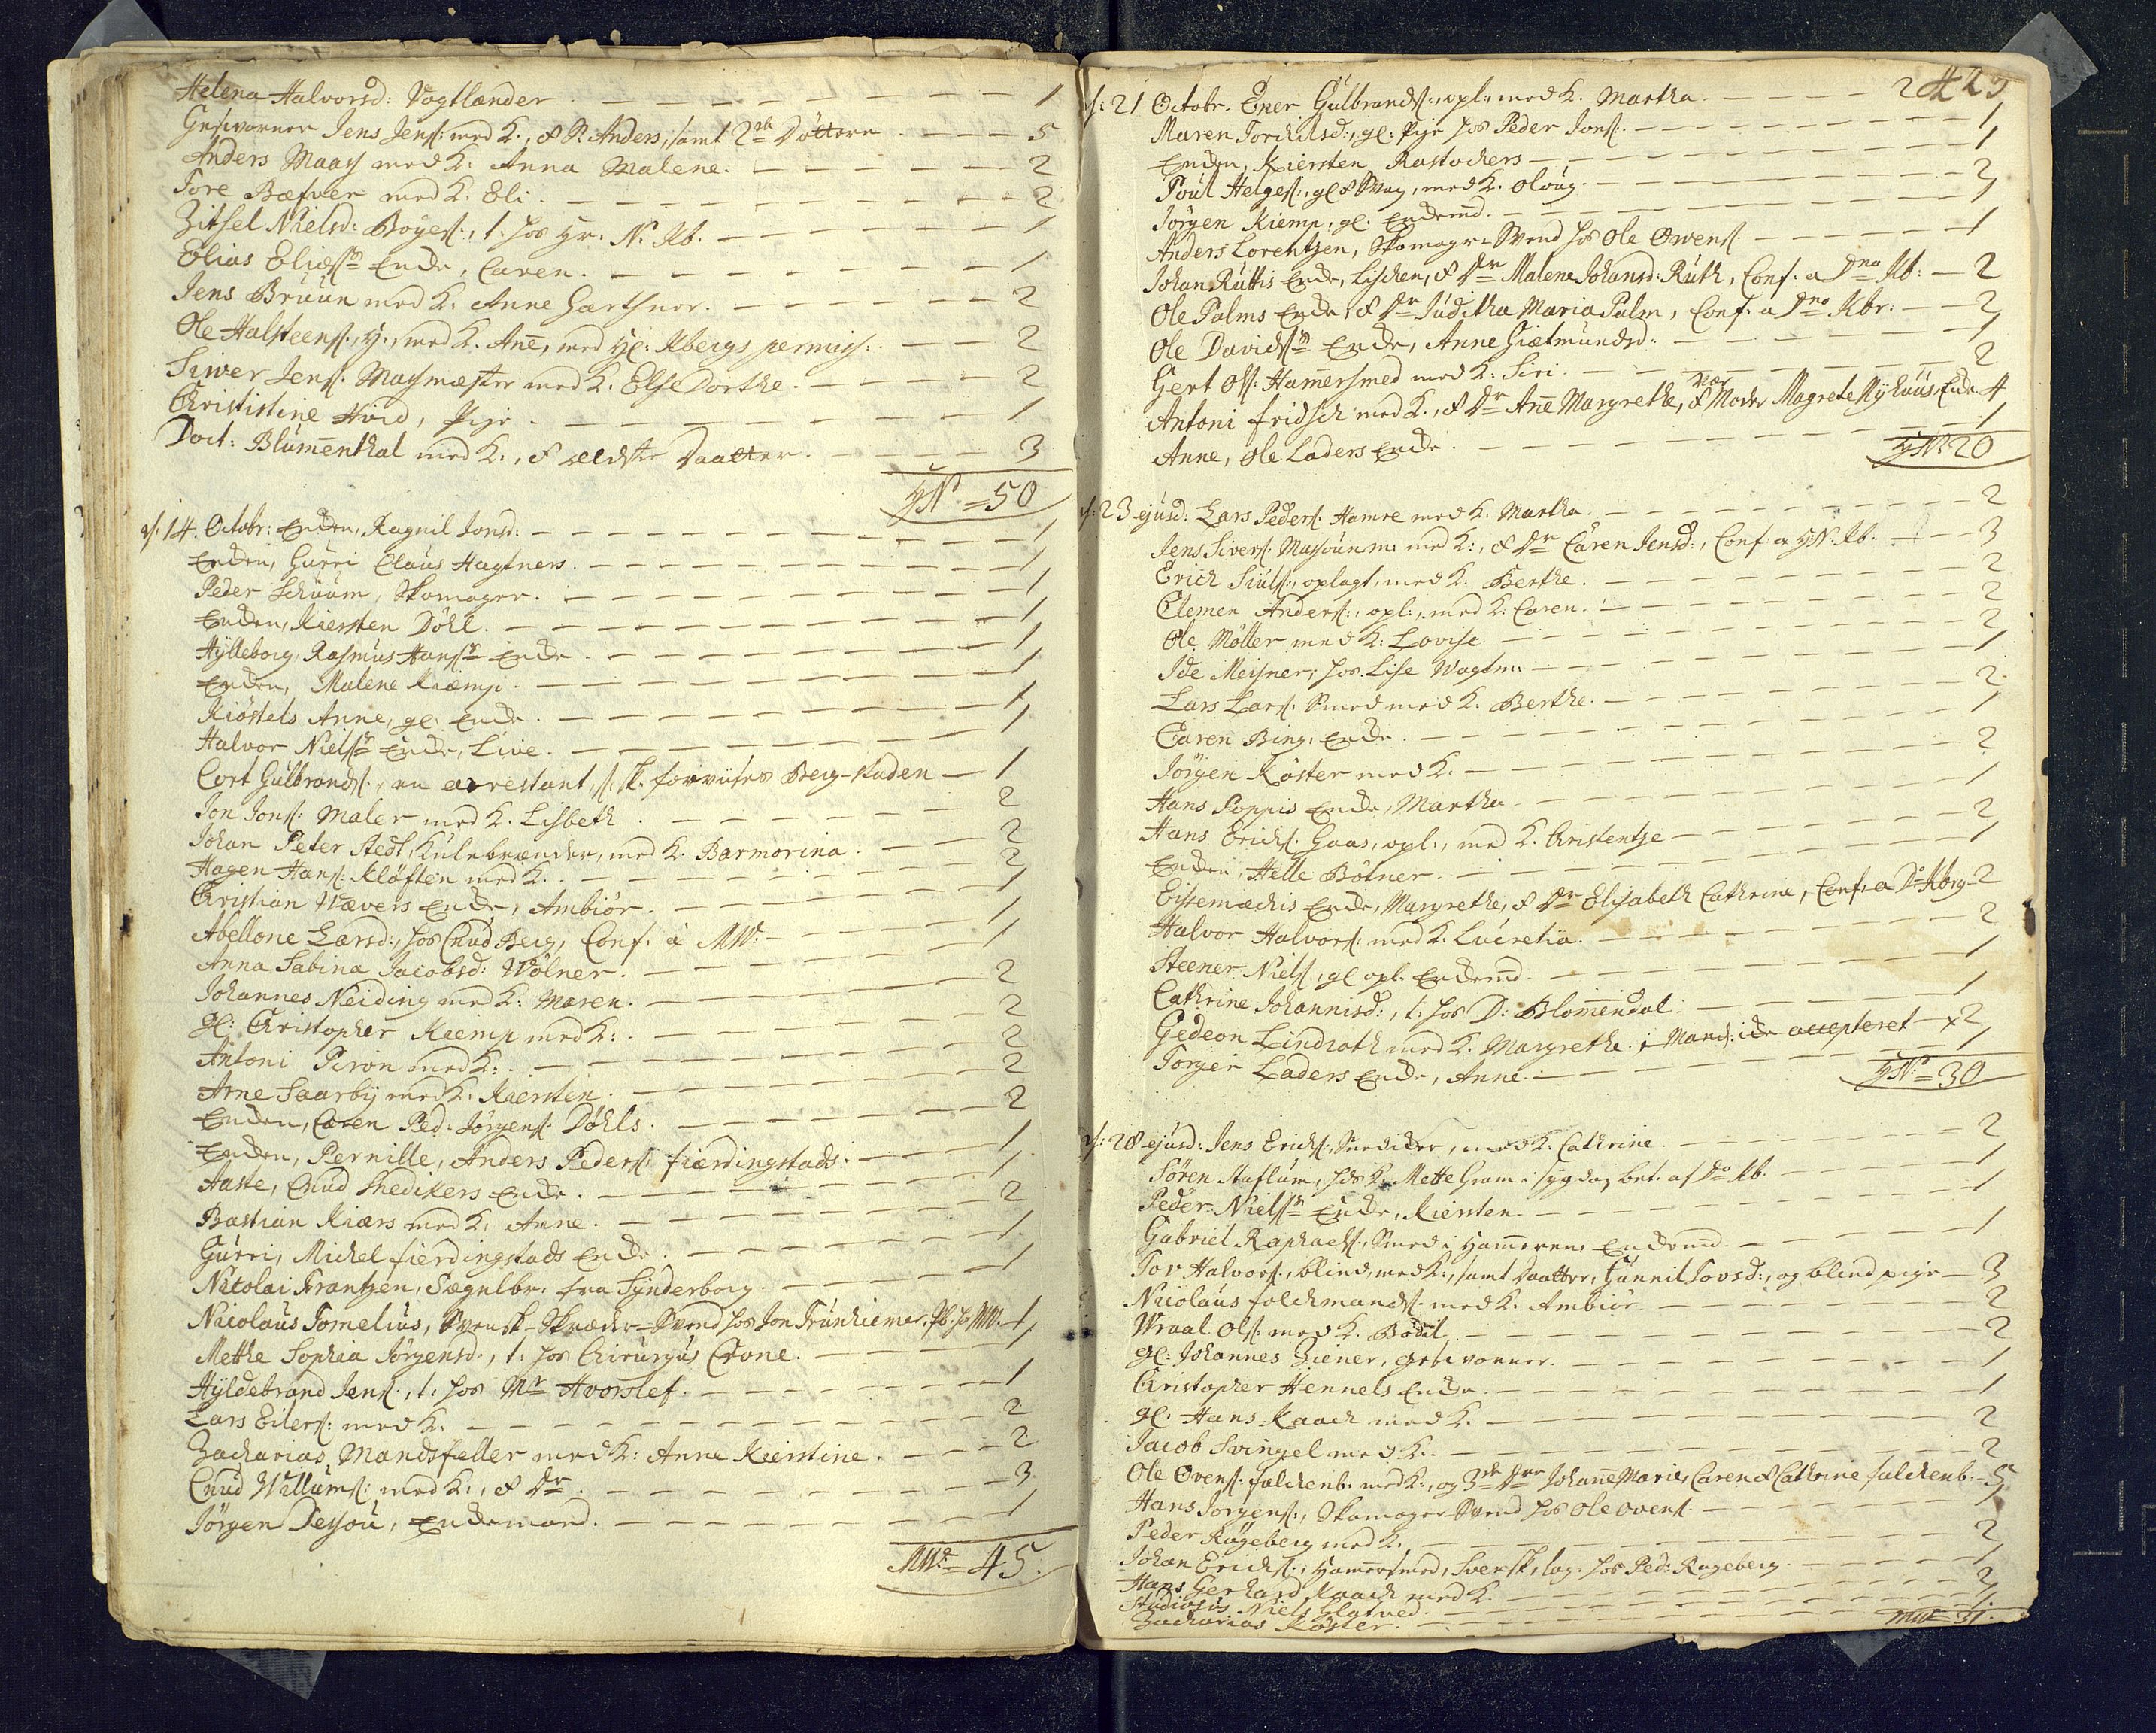 Helena Halvorsd: Vogtlænder. 1
Gesworner Jens Jens: med K., & S. Anders, samt 2de Döttre 5
Anders Maas med K: Anna Malene. 2
Tore Bæfver med K. Eli. 2
Zitsel Nielsd: Böyes:, t. hos Hr. N. Kb. 1
Elias Elias sn Encke, Caren. 1
Jens Bruun med K. Anne Gartsner. 2
Ole Halsteens:, H., med K. Anne, med Hl: Kbergs permiss: 2
Siwer Jens: Masmæster med K. Else Dorthe. 2
Christistine Hvid, Pige. 1
Doct: Blumenthal med K., & ældste Daatter. 3
HN = 50
d: 14. Octobr: Enken, Ragnil Jonsd: 1
Enken, Gurri Claus Hagtners. 1
Peder Schuum, Skomager. 1
Enken, Kiersten Döhl. 1
Hylleborg, Rasmus Hans: Encke. 1
Enken, Malene Kiemp. 1
Kiöstels Anne, gl. Encke. 1
Halvor Niels: Encke, Live. 1
Cort Gulbrands:, en arrestant, s. sk. forviises Berg-staden 1
Jon Jons: Maler med K. Lisbeth. 2
Johan Peter Stedt, Kulnbrænder, med K. Barmorina. 2
Hagen Hans: Klöften med K. 2
Christian Wævers Encke, Ambiör. 1
Abellone Larsd:, hos Cnud Berg, Conf. à MW: 1
Anna Sabina Jacobsd: Wölner. 1
Johannes Neiding med K: Maren. 2
gl: Christopher Kiemp med K: 2
Antoni Piron med K: 2
Arne Saarby med K. Kiersten. 2
Enken, Caren Ped: Jörgens: Döhls. 2
Enken, Pernille, Anders Peders: Fierdingstads. 1
Aaste, Cnud Snedkers Encke. 1
Bastian Kiærs med K: Anne. 2
Gurri, Michel Fierdingstads Encke. 1
Nicolai Frantzen, Tægulbr. fra Synderborg. 1
Nicolaus Tornelius, Svensk-Skræder-Svend hos Jon Trunhiemer, 1
Methe Sophia Jörgensd., t. hos Chirurgus Crone. 1
Hyldebrand Jens:, t. hos Mr Hvorslef. 1
Lars Eilers: med K. 2
Zacharias Mandsfeller med K: Anne Kierstine. 2
Cnud Willums: med K:, & Dr. 3
Jörgen Dessou, Enckemand. 1
MW = 45.
423
d: 21 Octobr. Ener Gulbrands:, opl:, med K. Martha. 2
Maren Torchilsd:, gl: Pige hos Peder Jons: 1
Enken, Kiersten Rastochers 1
Poul Helges:, gl & Svag, med K. Oloug. 2
Jörgen Kiemp, gl. Enckemd. 1
Anders Lorentzen, Skomager-Svend hos Ole Owens: 1
Johan Ruttis Encke, Lischen, & Dr Malene Johansd: Ruth, Conf. a Dno Kb: 2
Ole Palms Encke & Dr Juditha Maria Palm, Conf. a Dno Kbr. 2
Ole Davids: Encke, Anne Giætmundsd: 1
Gert Ols: Hamersmed med K: Siri. 2
Antoni Fridsch med K., & Dr Anne Margrethe, & Moder Magrete Nyhuus Encke 4
Anne, Ole Laders Encke. 1
HN = 20
d: 23 ejusd: Lars Peders: Hamre med K. Martha. 2
Jens Sivers: Masounm: med K:, & Dr Caren Jensd:, Conf: a H.N. Kb. 3
Erich Siuls:, oplagt, med K. Berthe. 2
Clemen Anders:, opl:, med K: Caren. 2
Ole Möller med K: Lovise 2
Ide Meisner, hos Lise Wagtm: 1
Lars Lars: Smed med K. Berthe. 2
Caren Bing, Encke. 1
Jörgen Köster med K. 2
Hans Poppis Encke, Martha. 1
Hans Erichs: Gaas, opl., med K. Christentze 2
Enken, Helle Bötner. 1
Eistemæchis Encke, Margrethe, & Dr Elisabeth Cathrine, Conf: a Do Kbrg 2
Halvor Halvors: med K. Lucretia. 2
Steener Niels:, gl opl. Enckemd. 1
Cathrine Johannisd:, t. hos D: Blomendal. 1
Gedeon Lindroth med K. Margrethe. 2
Torger Laders Encke, Anne. 1
HN = 30
d: 28 ejusd: Jens Erichs:, Snedicker, med K. Cathrine. 2
Sören Staflum, hos Mette Gram i sygdom, bet. af Do Kb. 1
Peder Niels: Encke, Kiersten. 1
Gabriel Raphaels:, Smed i Hameren, Enckemd. 1
Tor Halvors:, blind, med K., samt Daatter, Gunnil Tovsd:, og blind pige 3
Nicolaus Folchmands: med K. Ambiör. 2
Wraal Ols: med K. Bodil. 2
gl: Johannes Ziener, Gesworner. 1
Christopher Hennels Encke. 1
gl. Hans Kaach med K. 2
Jacob Svingel med K. 2
Ole Ovens: Falchenb. med K., og 3de Dre Johanne Marie, Caren & Cathrine Falchenb: 5
Hans Jorgens:, Skomager-Svend hos Ole Ovens: 1
Peder Rögeberg med K. 2
Johan Erichs:, Hamersmed, Svensk, log. hos Ped: Rogeberg. 1
Hans Gerhard Kaach med K. 2
Studiosus Niels Glatved. 1
Zacharias Köster.
MW = 31.